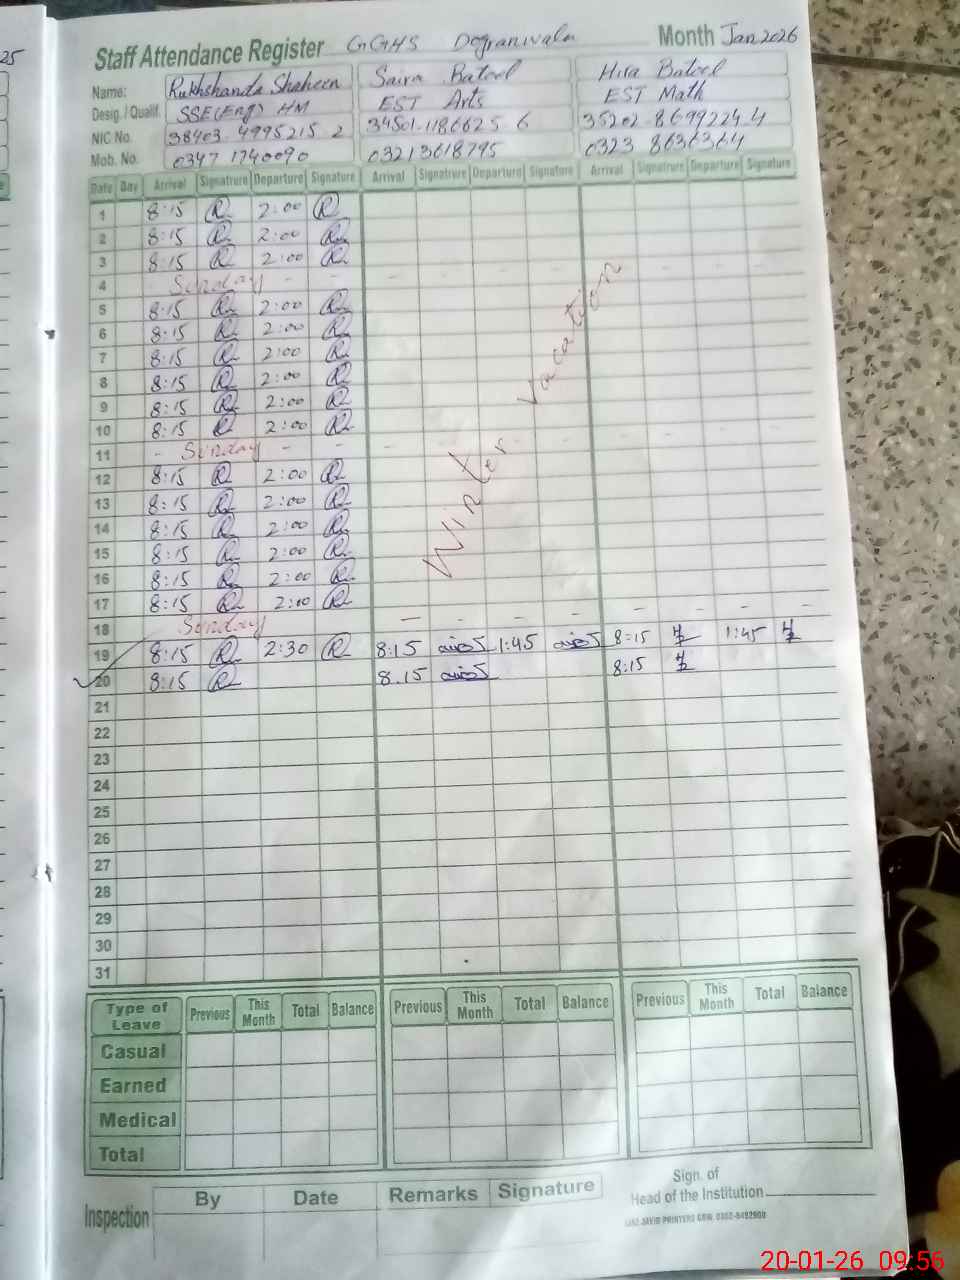 25
Staff Attendance Register GGHS Dogranwala Month Jan 2026
Name: Rukhshanda Shaheen Saira Batool Hira Batool
Desig. / Qualif. SSE(Eng) HM EST Arts EST Math
NIC No. 38403-4995215-2 34501-1186625-6 35202-8699224-4
Mob. No. 0347 1740090 03213618795 0323 8636364
Date Day Arrival Signatrure Departure Signature Arrival Signatrure Departure Signature Arrival Signatrure Departure Signature
1 8:15 R 2:00 R
2 8:15 R 2:00 R
3 8:15 R 2:00 R
4 - Sunday - - - - - -
5 8:15 R 2:00 R
6 8:15 R 2:00 R
7 8:15 R 2:00 R
8 8:15 R 2:00 R
9 8:15 R 2:00 R
10 8:15 R 2:00 R
11 - Sunday - - - - - -
12 8:15 R 2:00 R
13 8:15 R 2:00 R
14 8:15 R 2:00 R
15 8:15 R 2:00 R
16 8:15 R 2:00 R
17 8:15 R 2:00 R
Winter Vacation
18 Sunday - - - - - - -
19 8:15 R 2:30 R 8:15 1:45 8:15 1:45
20 8:15 R 8.15 8:15
21
22
23
24
25
26
27
28
29
30
31
Type of Leave Previous This Month Total Balance Previous This Month Total Balance Previous This Month Total Balance
Casual
Earned
Medical
Total
Inspection By Date Remarks Signature
Sign. of
Head of the Institution
20-01-26 09:56